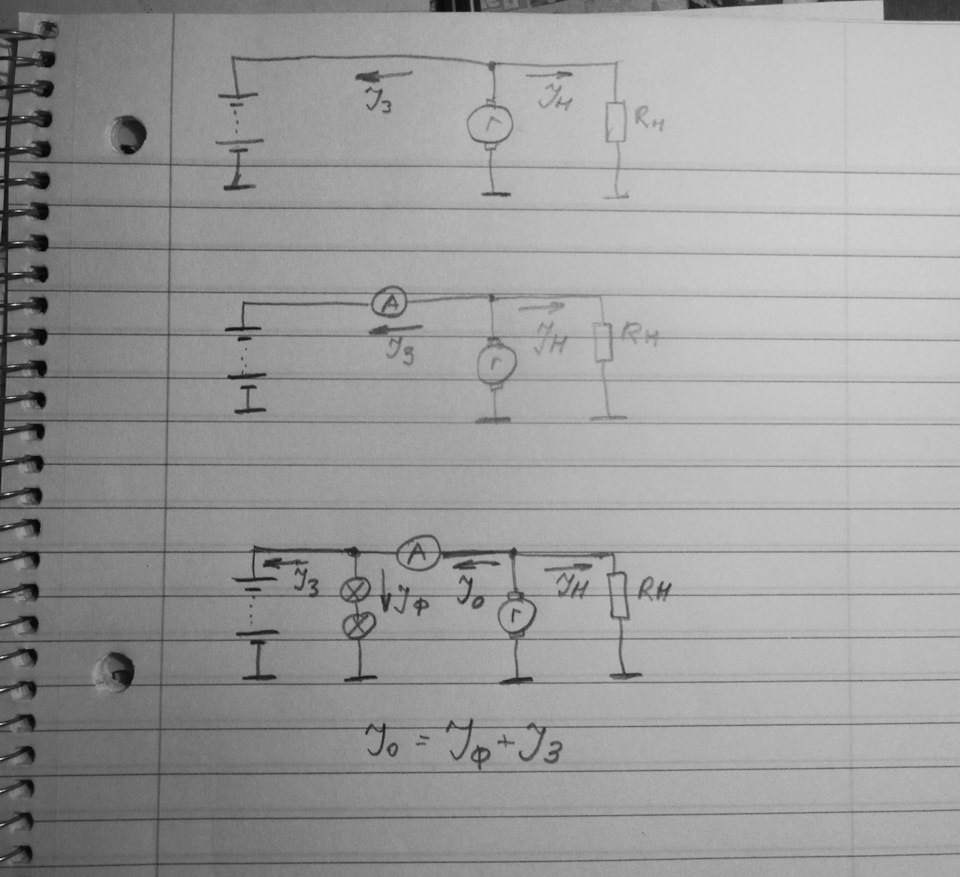 Iз Iн
г Rн
A
Iз Iн Rн
г
A
Iз Iф I0 Iн Rн
г
I0 = Iф + Iз